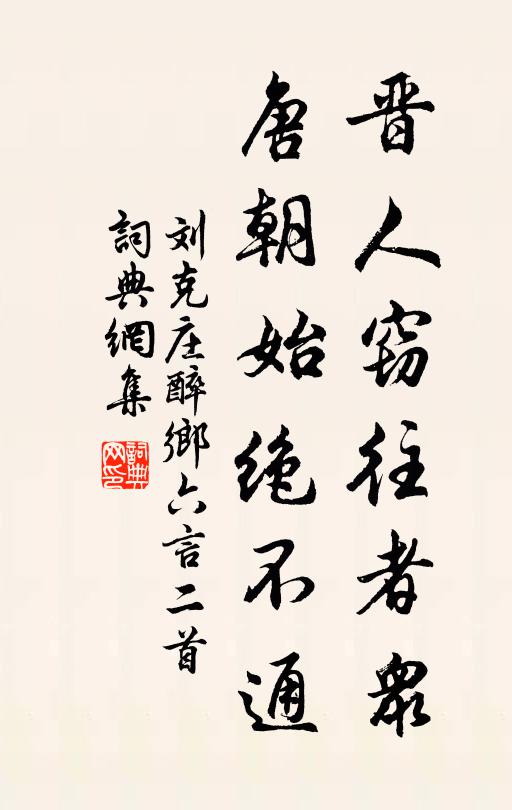 晋人窃往者眾
唐朝始绝不通
刘克庄醉鄉六言二首
詞典網集
詞典网印